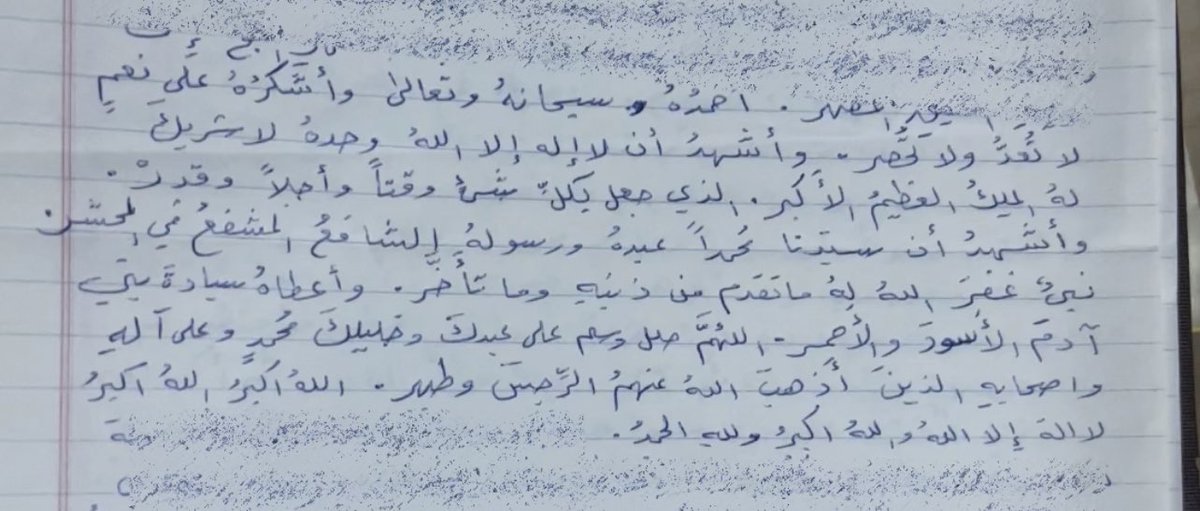 احمدُهُ سبحانهُ وتعالى وأشكرُهُ على نِعَمٍ
لا تُعَدُّ ولا تُحصر. وأشهدُ أن لا إله إلا اللهُ وحدهُ لا شريك
لهُ الملِكُ العظيمُ الأكبر. الذي جعل لكلّ شئٍ وقتاً وأجلاً وقدرْ.
وأشهدُ أن سيّدنا مُحمداً عبدهُ ورسولهُ الشافعُ المشفعُ في المحشر.
نبيٌ غفرَ اللهُ لهُ ما تقدم من ذنبِهِ وما تأخّر. وأعطاهُ سيادةَ بني
آدمَ الأسودَ والأحمر. اللهُمَّ صلِ وسلم على عبدكَ وخليلكَ مُحمدٍ وعلى آلهِ
واصحابهِ الذينَ أذهبَ اللهُ عنهمُ الرّجسَ وطهر. اللهُ اكبرُ اللهُ اكبرُ
لا الة إلا اللهُ واللهُ اكبرُ وللهِ الحمدُ.